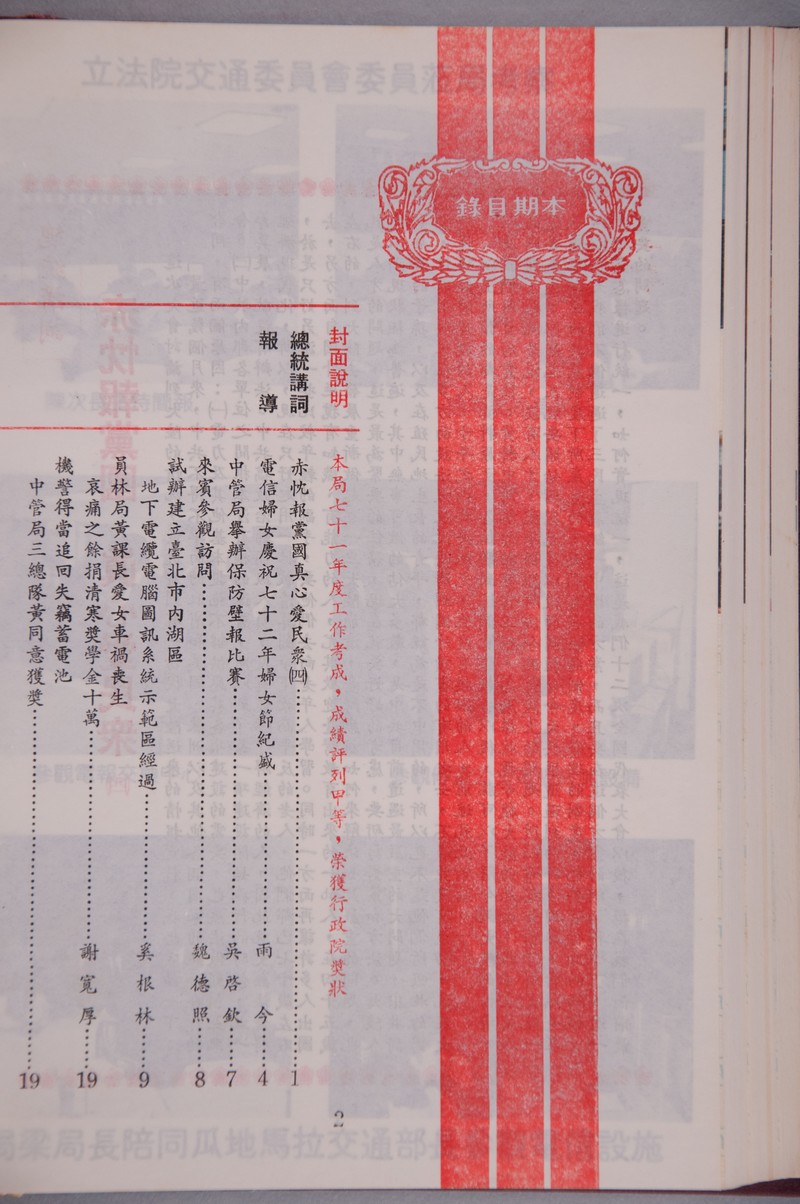 本期目錄
封面說明
本局七十一年度工作考成，成績評列甲等，榮獲行政院獎狀 2
總統講詞
赤忱報黨國真心愛民衆㈣……1
報導
電信婦女慶祝七十二年婦女節紀盛……雨今……4
中管局舉辦保防壁報比賽……吳啓欽……7
來賓參觀訪問……魏德照……8
試辦建立臺北市內湖區
地下電纜電腦圖訊系統示範區經過……奚根林……9
員林局黃課長愛女車禍喪生
哀痛之餘捐清寒獎學金十萬……謝寬厚……19
機警得當追回失竊蓄電池
中管局三總隊黃同意獲獎……19